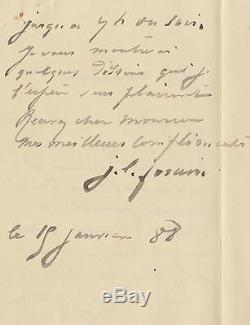 jusqu'à 7 h du soir.
je vous montrerai
quelques dessins qui je
l'espère vous plairont
Recevez cher monsieur
mes meilleurs compliments
j. l. forain
le 15 janvier 88